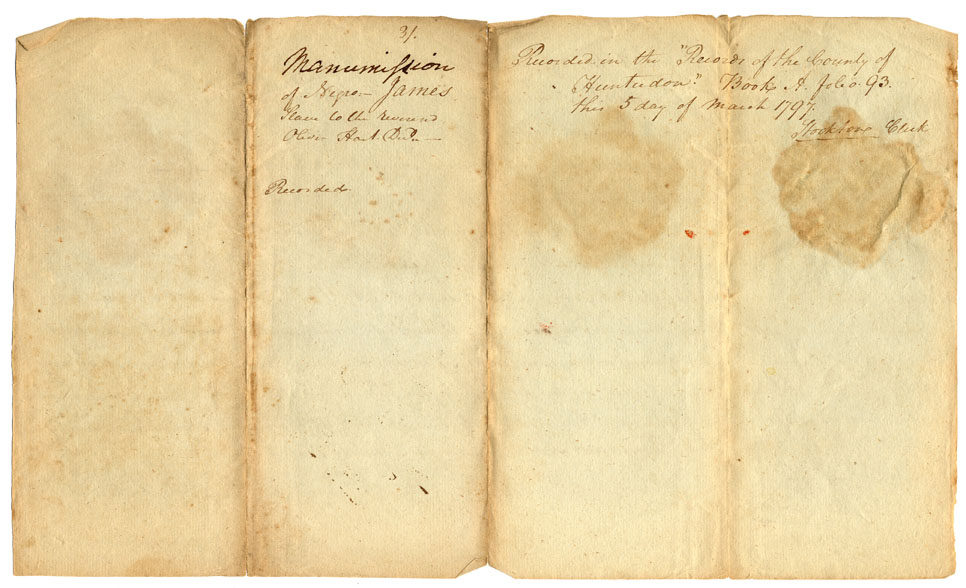 3/.
Manumission
of Negro James
Slave to the reverend
Oliver Hart
Recorded.
Recorded in the "Records of the County of
Hunterdon." Book A. folio. 93.
this 5 day of March 1797.
Stockton Clerk